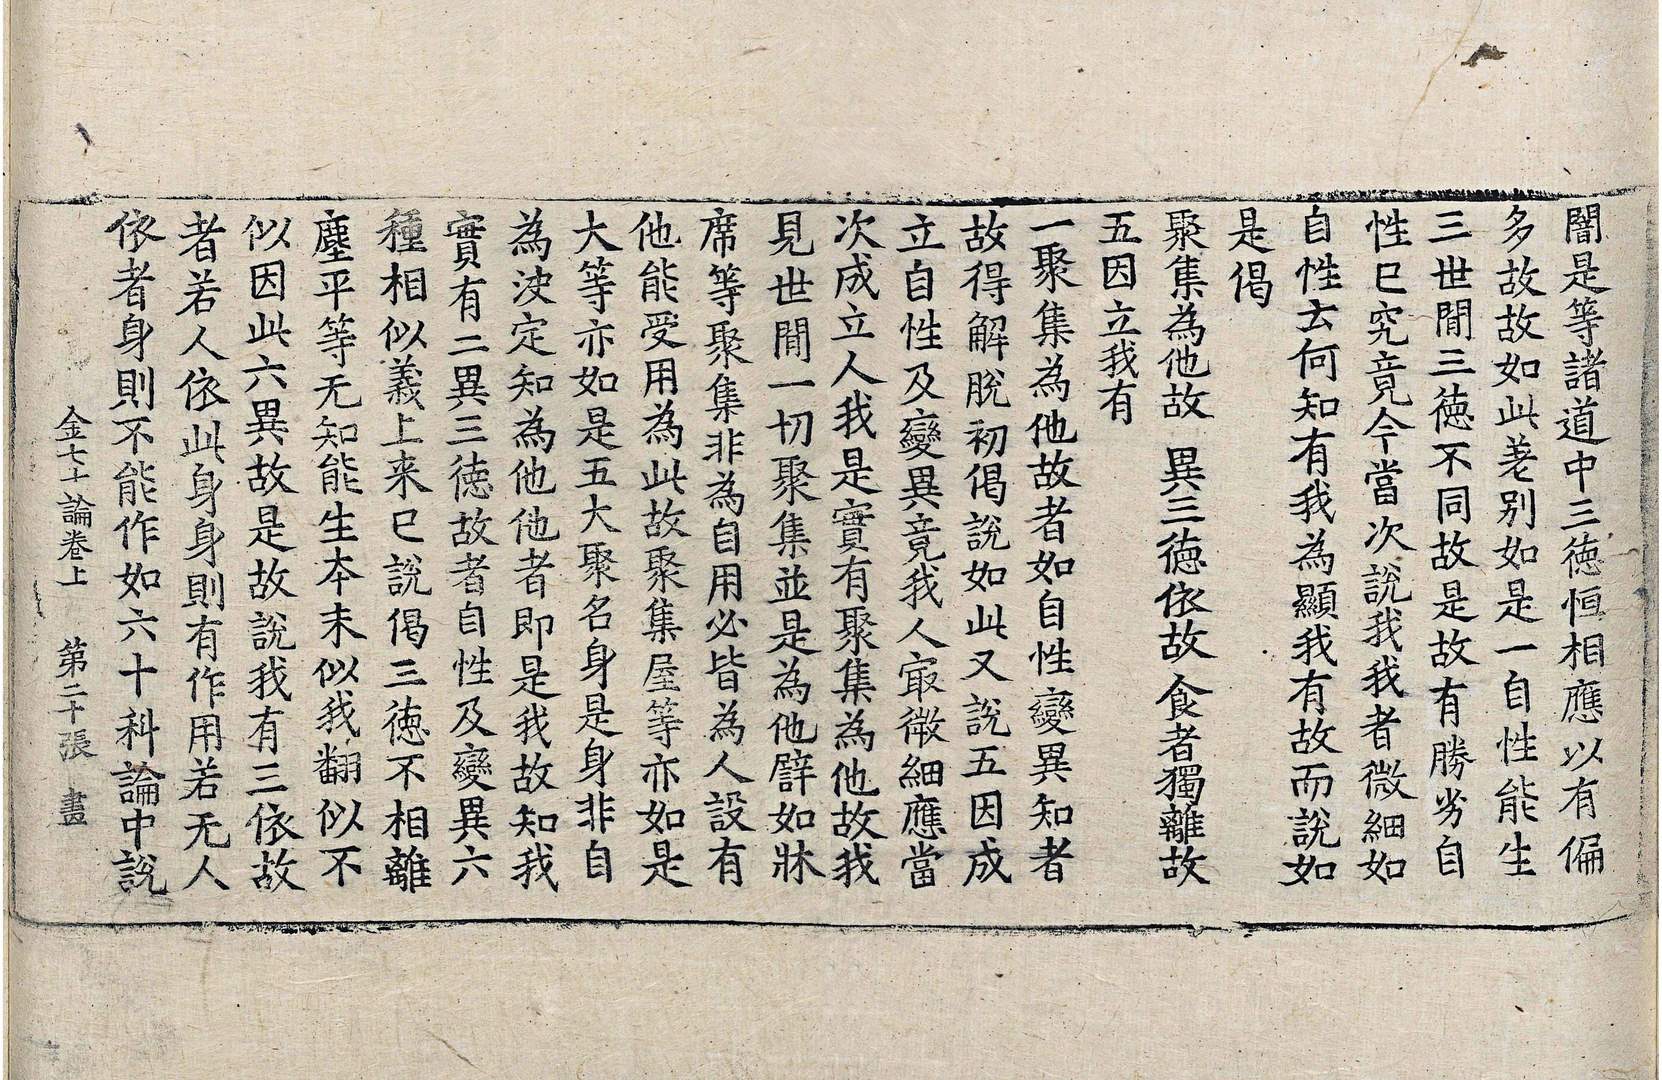 闇是等諸道中三徳恒相應以有偏
多故故如此差别如是一自性能生
三世間三徳不同故是故有勝劣自
性已究竟今當次說我我者微細如
自性去何知有我為顯我有故而說如
是偈
聚集為他故 異三徳依故 食者獨離故
五因立我有
一聚集為他故者如自性變異知者
故得解脫初偈說如此又說五因成
立自性及變異竟我人㝡微細應當
次成立人我是實有聚集為他故我
見世間一切聚集並是為他譬如牀
席等聚集非為自用必皆為人設有
他能受用為此故聚集屋等亦如是
大等亦如是五大聚名身是身非自
為決定知為他他者即是我故知我
實有二異三徳故者自性及變異六
種相似義上来已說偈三徳不相離
塵平等无知能生夲末似我翻似不
似因此六異故是故說我有三依故
者若人依此身身則有作用若无人
依者身則不能作如六十科論中說
金七十論卷上 第二十張 畫